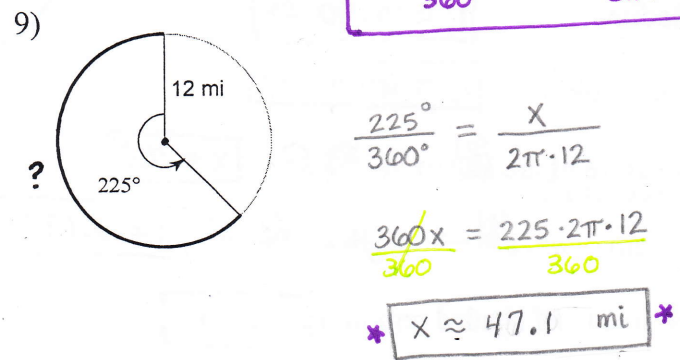 9)
360
12 mi
?
225°
225° / 360° = x / 2π·12
360x / 360 = 225·2π·12 / 360
* x ≈ 47.1 mi *